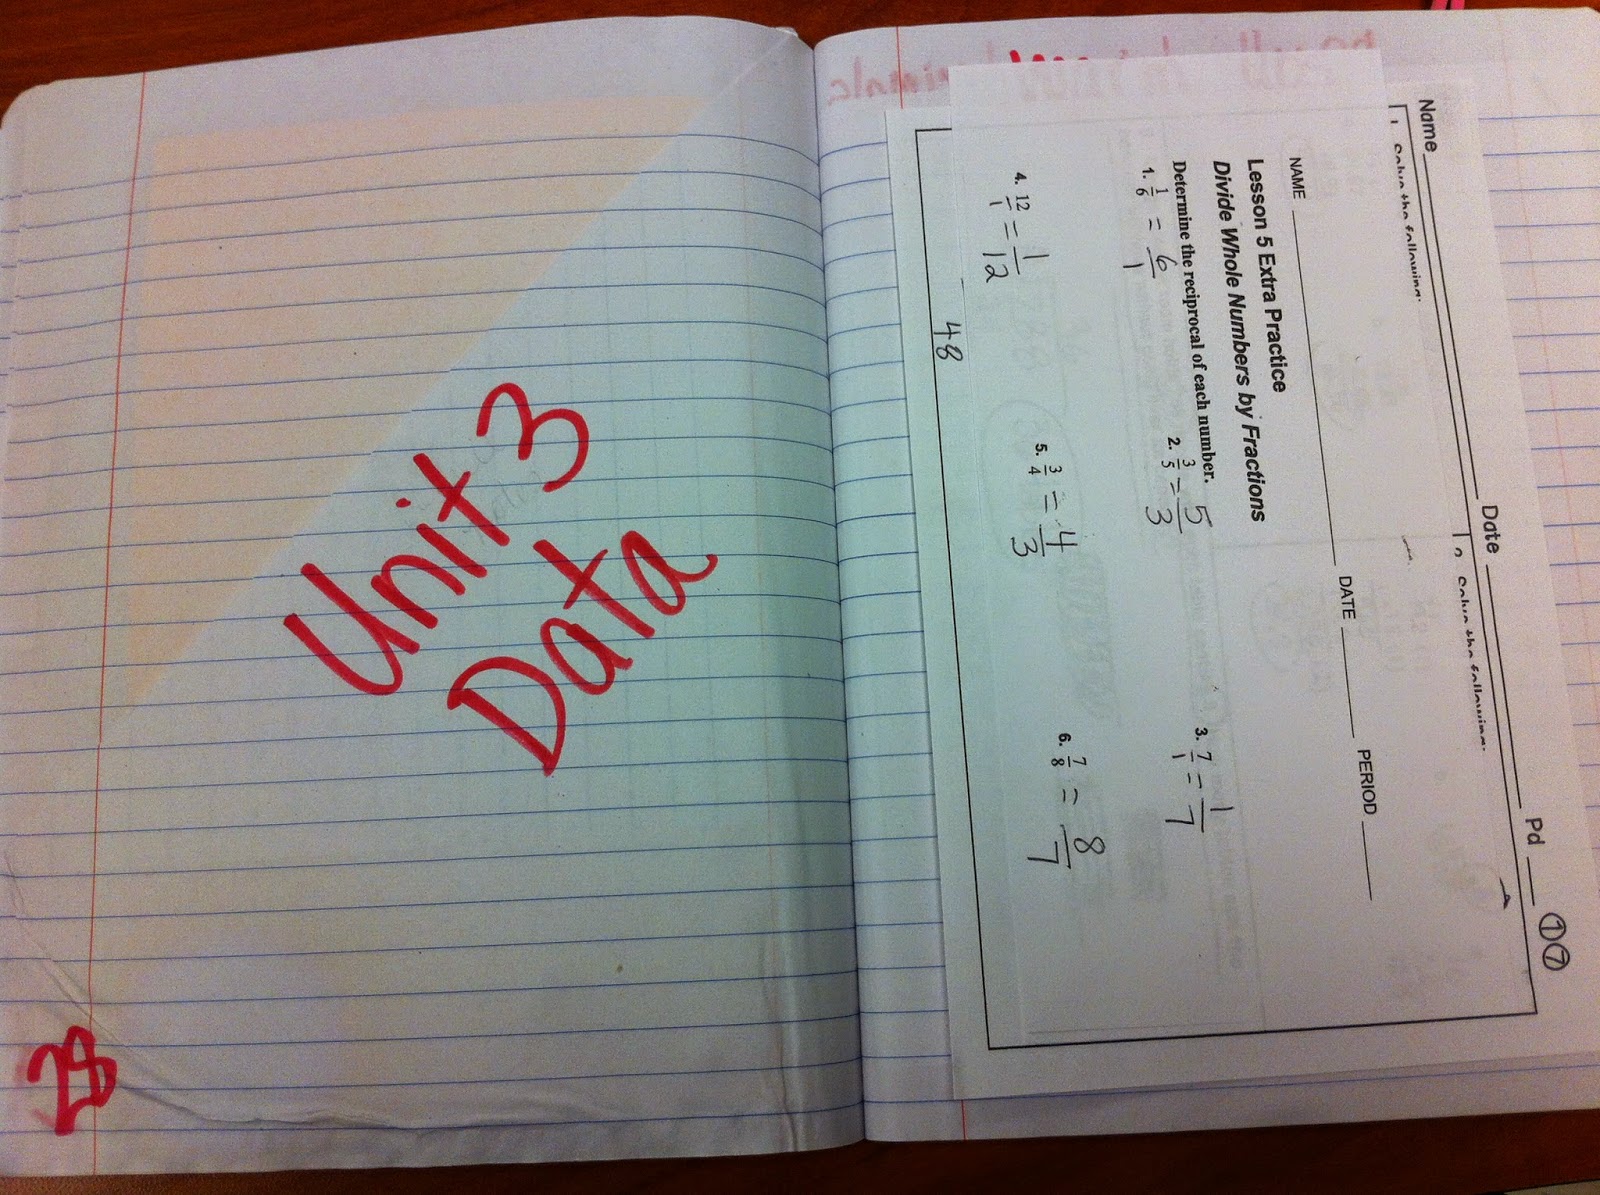 Unit 3
Data
28
Name Date Pd
1 7
Solve the following:
Solve the following:
NAME DATE PERIOD
Lesson 5 Extra Practice
Divide Whole Numbers by Fractions
Determine the reciprocal of each number.
1. 1/6 = 6/1 2. 3/5 = 5/3 3. 7/1 = 1/7
4. 12/1 = 1/12 5. 3/4 = 4/3 6. 7/8 = 8/7
48